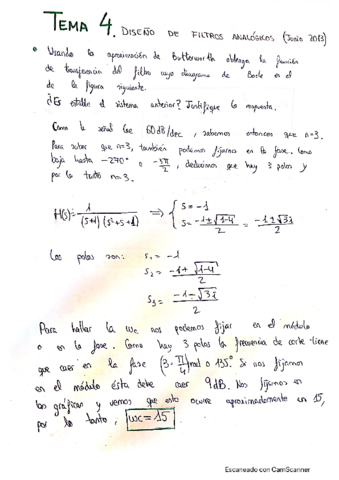 TEMA 4. DISEÑO DE FILTROS ANALÓGICOS (Junio 2013)
• Usando la aproximación de Butterworth obtenga la función
de transferencia del filtro cuyo diagrama de Bode es el
de la figura siguiente.
¿Es estable el sistema anterior? Justifique la respuesta.
Como la señal cae 60dB/dec, sabemos entonces que n=3.
Para saber que n=3, también podemos fijarnos en la fase. Como
baja hasta -270° o -3π/2, deducimos que hay 3 polos y
por lo tanto n=3.
H(s)= 1/((s+1)(s²+s+1)) ⟹ { s=-1
s= (-1±√1-4)/2 = (-1±√3i)/2
Los polos son: s₁ = -1
s₂ = (-1+√1-4)/2
s₃ = (-1-√3i)/2
Para hallar la wc nos podemos fijar en el módulo
o en la fase. Como hay 3 polos la frecuencia de corte tiene
que caer en la fase (3·π/4) rad o 135°. Si nos fijamos
en el módulo ésta debe caer 9dB. Nos fijamos en
las gráficas y vemos que esto ocurre aproximadamente en 15,
por lo tanto, wc=15
Escaneado con CamScanner